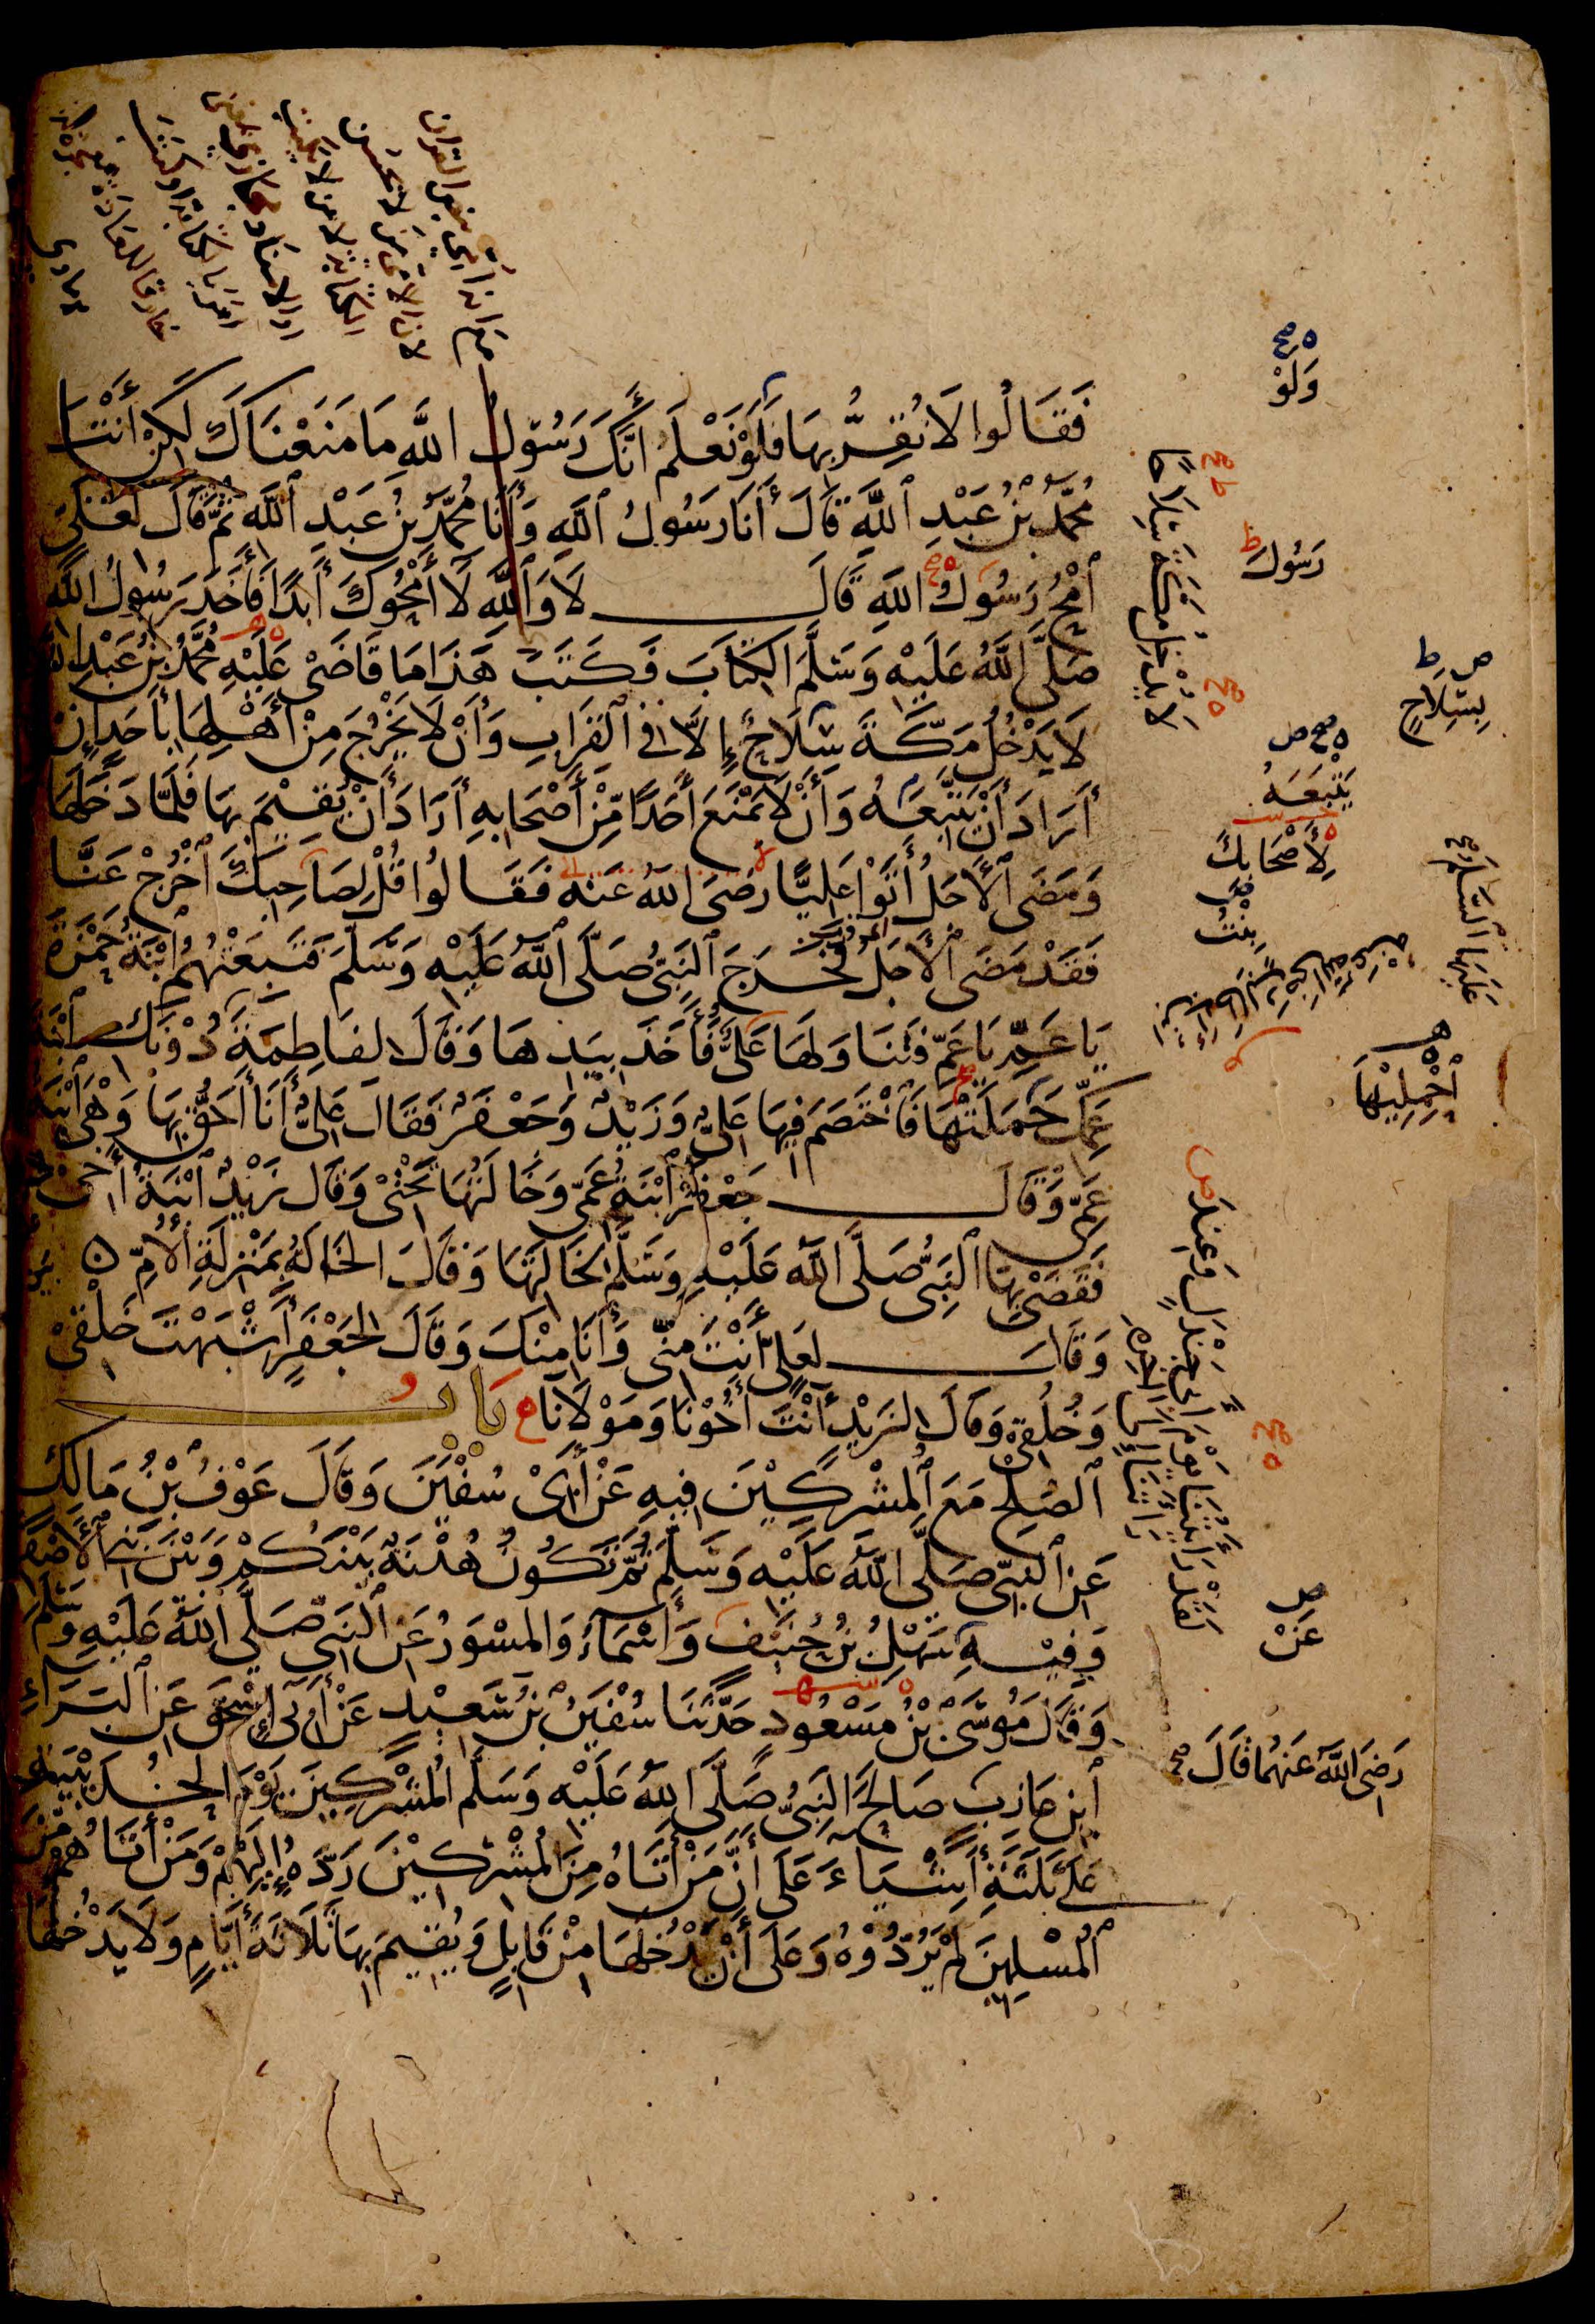 فَقَالُوا لَا نُقِرُّ بِهَا فَلَوْ نَعْلَمُ أَنَّكَ رَسُولُ اللَّهِ مَا مَنَعْنَاكَ لَكِنْ أَنْتَ
مُحَمَّدُ بْنُ عَبْدِ اللَّهِ قَالَ أَنَا رَسُولُ اللَّهِ وَأَنَا مُحَمَّدُ بْنُ عَبْدِ اللَّهِ ثُمَّ قَالَ لِعَلِيٍّ
امْحُ رَسُولُ اللَّهِ قَالَ لَا وَاللَّهِ لَا أَمْحُوكَ أَبَدًا فَأَخَذَ رَسُولُ اللَّهِ
صَلَّى اللَّهُ عَلَيْهِ وَسَلَّمَ الْكِتَابَ فَكَتَبَ هَذَا مَا قَاضَى عَلَيْهِ مُحَمَّدُ بْنُ عَبْدِ اللَّهِ
لَا يَدْخُلُ مَكَّةَ سِلَاحٌ إِلَّا فِي الْقِرَابِ وَأَنْ لَا يَخْرُجَ مِنْ أَهْلِهَا بِأَحَدٍ إِنْ
أَرَادَ أَنْ يَتَّبِعَهُ وَأَنْ لَا يَمْنَعَ أَحَدًا مِنْ أَصْحَابِهِ أَرَادَ أَنْ يُقِيمَ بِهَا فَلَمَّا دَخَلَهَا
وَمَضَى الْأَجَلُ أَتَوْا عَلِيًّا رَضِيَ اللَّهُ عَنْهُ فَقَالُوا قُلْ لِصَاحِبِكَ اخْرُجْ عَنَّا
فَقَدْ مَضَى الْأَجَلُ فَخَرَجَ النَّبِيُّ صَلَّى اللَّهُ عَلَيْهِ وَسَلَّمَ فَتَبِعَتْهُمُ ابْنَةُ حَمْزَةَ
يَا عَمِّ يَا عَمِّ فَتَنَاوَلَهَا عَلِيٌّ فَأَخَذَ بِيَدِهَا وَقَالَ لِفَاطِمَةَ دُونَكِ ابْنَةَ
عَمِّكِ حَمَلَتْهَا فَاخْتَصَمَ فِيهَا عَلِيٌّ وَزَيْدٌ وَجَعْفَرٌ فَقَالَ عَلِيٌّ أَنَا أَحَقُّ بِهَا وَهِيَ ابْنَةُ
عَمِّي وَقَالَ جَعْفَرٌ ابْنَةُ عَمِّي وَخَالَتُهَا تَحْتِي وَقَالَ زَيْدٌ ابْنَةُ أَخِي
فَقَضَى بِهَا النَّبِيُّ صَلَّى اللَّهُ عَلَيْهِ وَسَلَّمَ لِخَالَتِهَا وَقَالَ الْخَالَةُ بِمَنْزِلَةِ الْأُمِّ
وَقَالَ لِعَلِيٍّ أَنْتَ مِنِّي وَأَنَا مِنْكَ وَقَالَ لِجَعْفَرٍ أَشْبَهْتَ خَلْقِي
وَخُلُقِي وَقَالَ لِزَيْدٍ أَنْتَ أَخُونَا وَمَوْلَانَا بَابُ
الصُّلْحِ مَعَ الْمُشْرِكِينَ فِيهِ عَنْ أَبِي سُفْيَنَ وَقَالَ عَوْفُ بْنُ مَالِكٍ
عَنِ النَّبِيِّ صَلَّى اللَّهُ عَلَيْهِ وَسَلَّمَ ثُمَّ تَكُونُ هُدْنَةٌ بَيْنَكُمْ وَبَيْنَ بَنِي الْأَصْفَرِ
وَفِيهِ سَهْلُ بْنُ حُنَيْفٍ وَأَسْمَاءُ وَالْمِسْوَرُ عَنِ النَّبِيِّ صَلَّى اللَّهُ عَلَيْهِ وَسَلَّمَ
وَقَالَ مُوسَى بْنُ مَسْعُودٍ حَدَّثَنَا سُفْيَنُ بْنُ سَعِيدٍ عَنْ أَبِي إِسْحَقَ عَنِ الْبَرَاءِ
ابْنِ عَازِبٍ صَالَحَ النَّبِيُّ صَلَّى اللَّهُ عَلَيْهِ وَسَلَّمَ الْمُشْرِكِينَ يَوْمَ الْحُدَيْبِيَةِ
عَلَى ثَلَثَةِ أَشْيَاءَ عَلَى أَنَّ مَنْ أَتَاهُ مِنَ الْمُشْرِكِينَ رَدَّهُ إِلَيْهِمْ وَمَنْ أَتَاهُمْ مِنَ
الْمُسْلِمِينَ لَمْ يَرُدُّوهُ وَعَلَى أَنْ يَدْخُلَهَا مِنْ قَابِلٍ وَيُقِيمَ بِهَا ثَلَاثَةَ أَيَّامٍ وَلَا يَدْخُلَهَا
وَلَوْ
رَسُولَ
لَا يُدْخِلُ مَكَّةَ سِلَاحًا
بِسِلَاحٍ
يَتْبَعَهُ
لِأَصْحَابِكَ
بِنْتُ
عَلَيْهَا السَّلَامُ
احْمِلِيهَا
لَقَدْ رَأَيْتُنَا يَوْمَ أَبِي جَنْدَلٍ وَعِنْدَ
عَنْ
رَضِيَ اللَّهُ عَنْهُمَا قَالَ